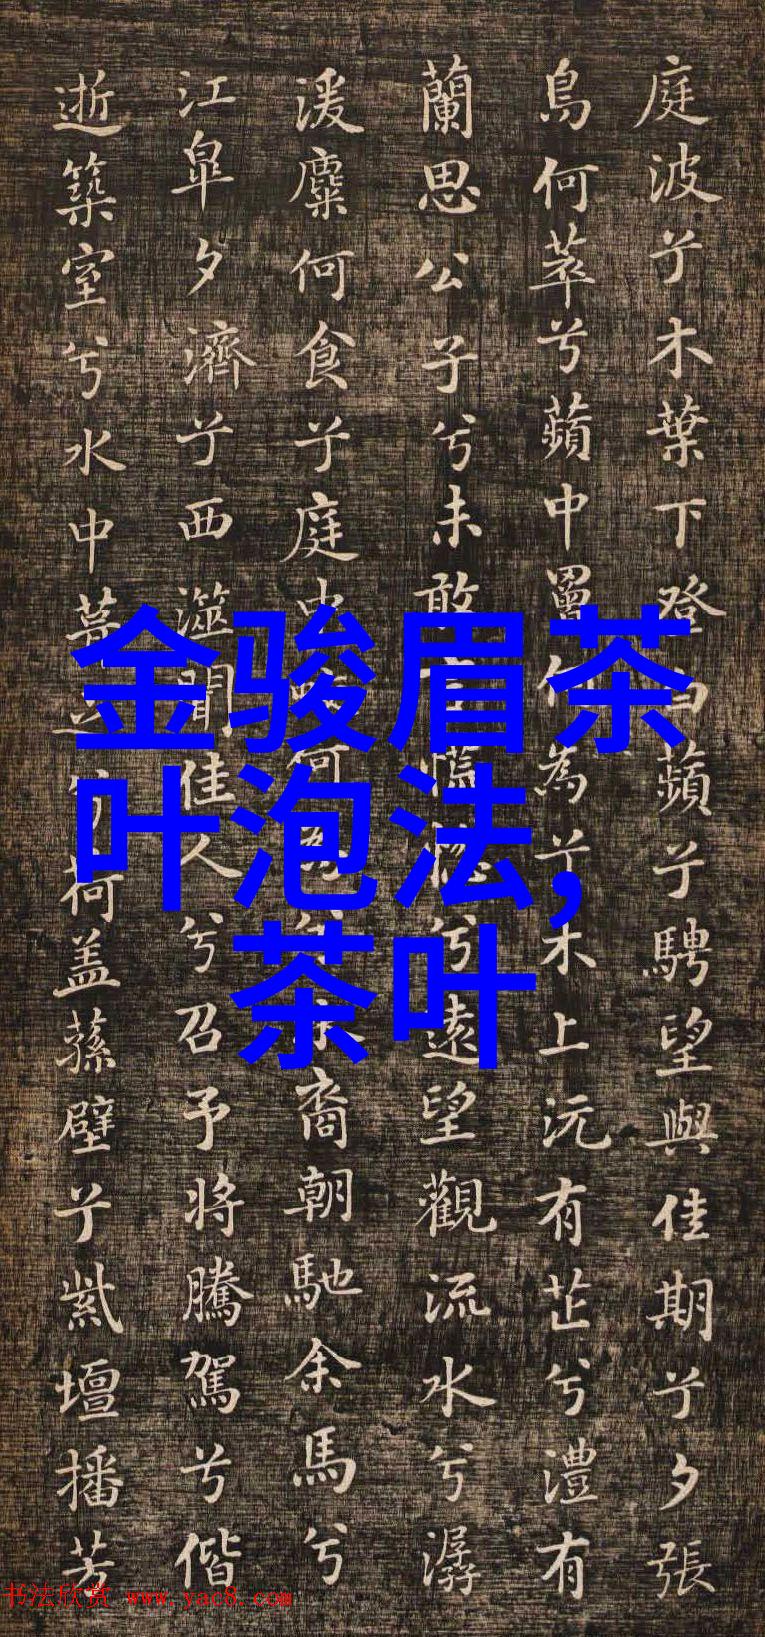 庭波兮木葉下登白蘋兮騁望與佳期兮夕張
鳥何萃兮蘋中罾何為兮木上沅有芷兮澧有
蘭思公子兮未敢言慌惚兮遠望觀流水兮潺
湲麋何食兮庭中何裔朝馳余馬兮
江皋夕濟兮西澨聞佳人兮召予將騰駕兮偕
逝築室兮水中葺之兮荷盖蓀壁兮紫壇播芳
金骏眉茶
叶泡法,
茶叶
书法欣赏 www.yac8.com